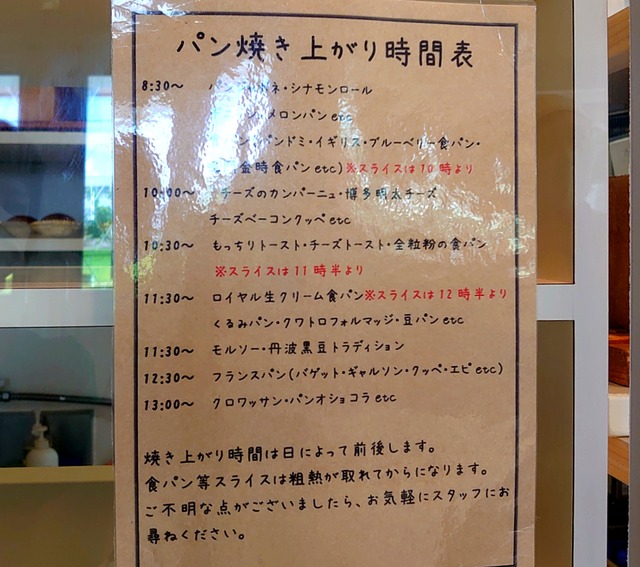 パン焼き上がり時間表
8:30～ パン ネ・シナモンロール
メロンパン etc
ン・パンドミ・イギリス・ブルーベリー食パン・
金時食パン etc)※スライスは10時より
10:00～ チーズのカンパーニュ・博多明太チーズ
チーズベーコンクッペ etc
10:30～ もっちりトースト・チーズトースト・全粒粉の食パン
※スライスは11時半より
11:30～ ロイヤル生クリーム食パン※スライスは12時半より
くるみパン・クワトロフォルマッジ・豆パン etc
11:30～ モルソー・丹波黒豆トラディション
12:30～ フランスパン(バゲット・ギャルソン・クッペ・エピ etc)
13:00～ クロワッサン・パンオショコラ etc
焼き上がり時間は日によって前後します。
食パン等スライスは粗熱が取れてからになります。
ご不明な点がございましたら、お気軽にスタッフにお
尋ねください。